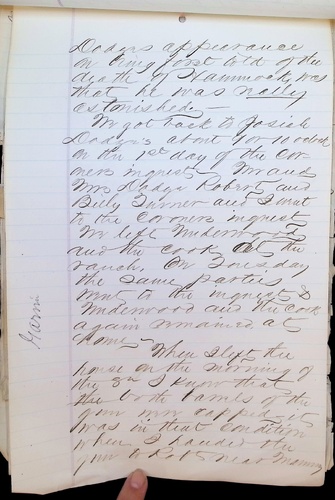 Dodges appearance
on being first told of the
death of Hammock, was
that he was really
astonished. —
We got back to Josiah
Dodge's about 9 or 10 oclock
on the 1st day of the Cor
oners inquest. Mr and
Mrs Dodge Robert and
Billy Turner and I went
to the Coroners inquest
We left Underwood
and the cook at the
ranch. On Tuesday
the same parties
went to the inquest &
Underwood and the cook
again remained at
home —
When I left the
house on the morning of
the 8th I know that
the both barrels of the
gun were capped, it
was in that condition
when I handed the
gun to Rob near
Garvin